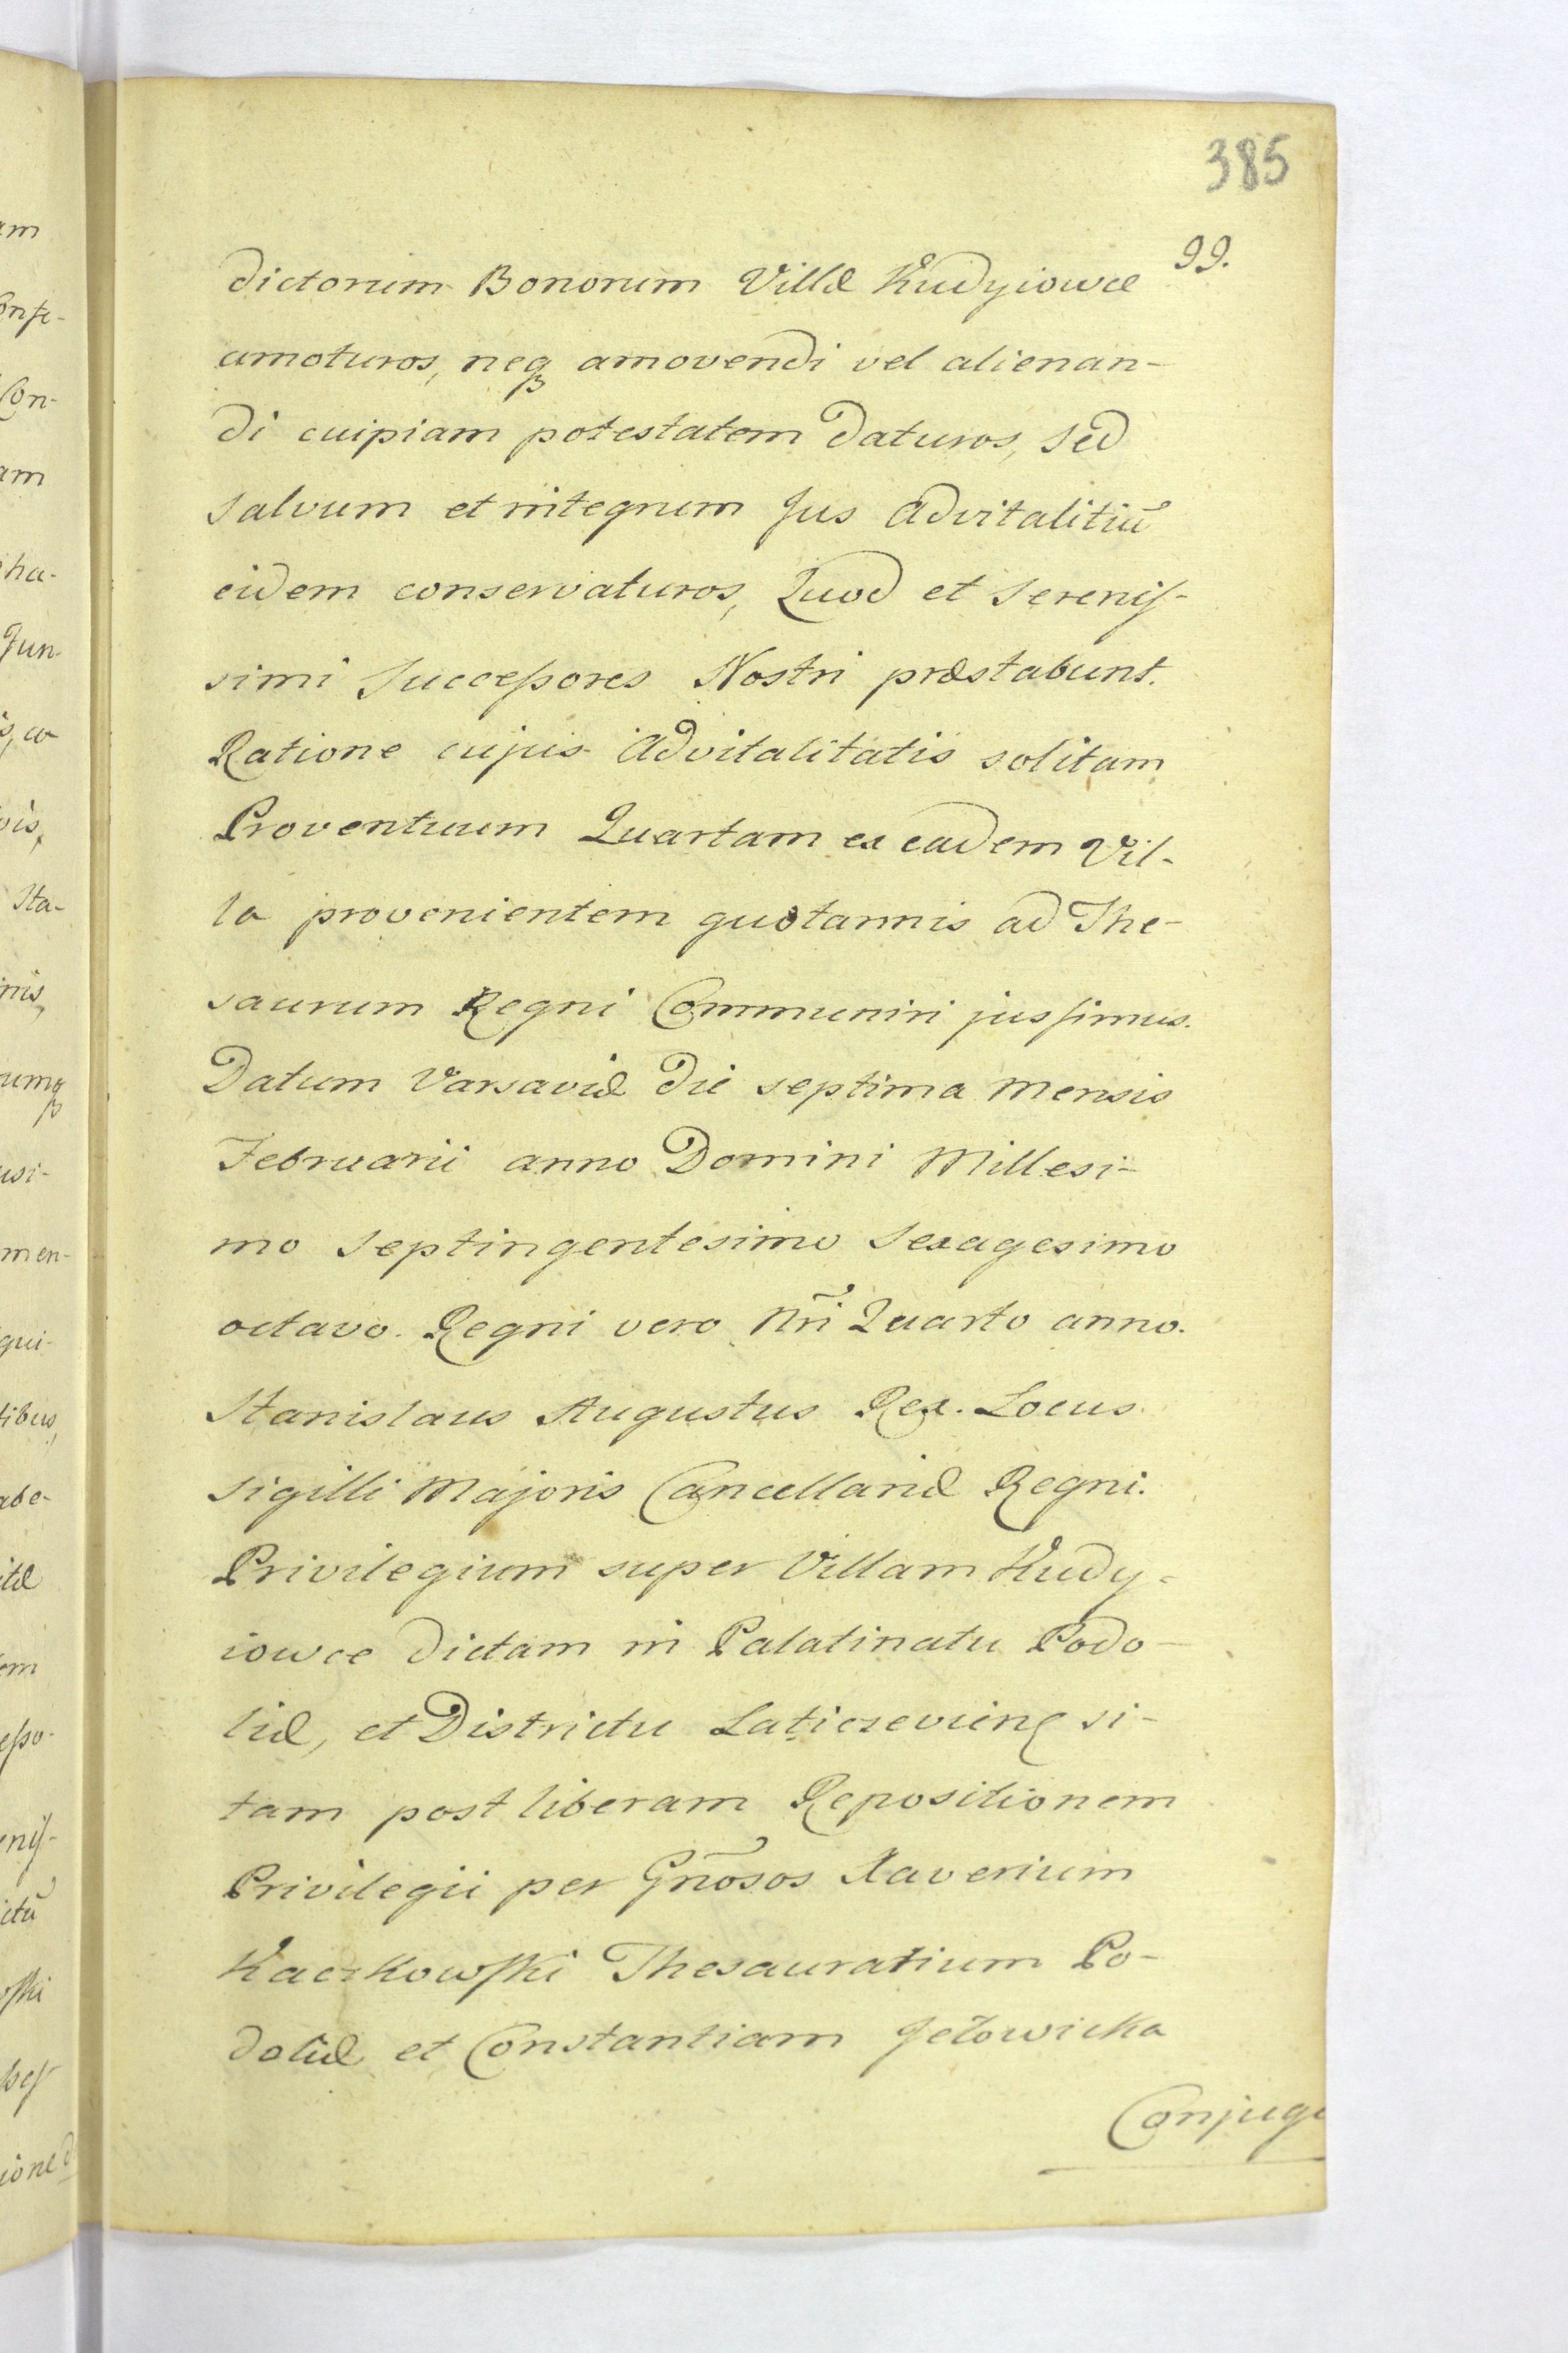 385
99.
dictorum Bonorum Villæ Kudyiowce
amoturos, neqꝫ amovendi vel alienan-
di cuipiam potestatem daturos, sed
salvum et integrum Jus Advitalitiũ
eidem conservaturos, Quod et Serenis-
simi Successores Nostri præstabunt.
Ratione cujus Advitalitatis solitam
Proventuum Quartam ex eadem Vil-
la provenientem quotannis ad The-
saurum Regni Communiri jussimus.
Datum Varsaviæ die septima Mensis
Februarii anno Domini Millesi-
mo Septingentesimo Sexagesimo
octavo. Regni vero Nr̃i Quarto anno.
Stanislaus Augustus Rex. Locus
Sigilli Majoris Cancellariæ Regni.
Privilegium super Villam Kudy-
iowce dictam in Palatinatu Podo-
liæ, et Districtu Laticzevien si-
tam post liberam Repositionem
Privilegii per Gñosos Xaverium
Kaczkowski Thesauratium Po-
doliæ et Constantiam Jełowicka
Conjuge